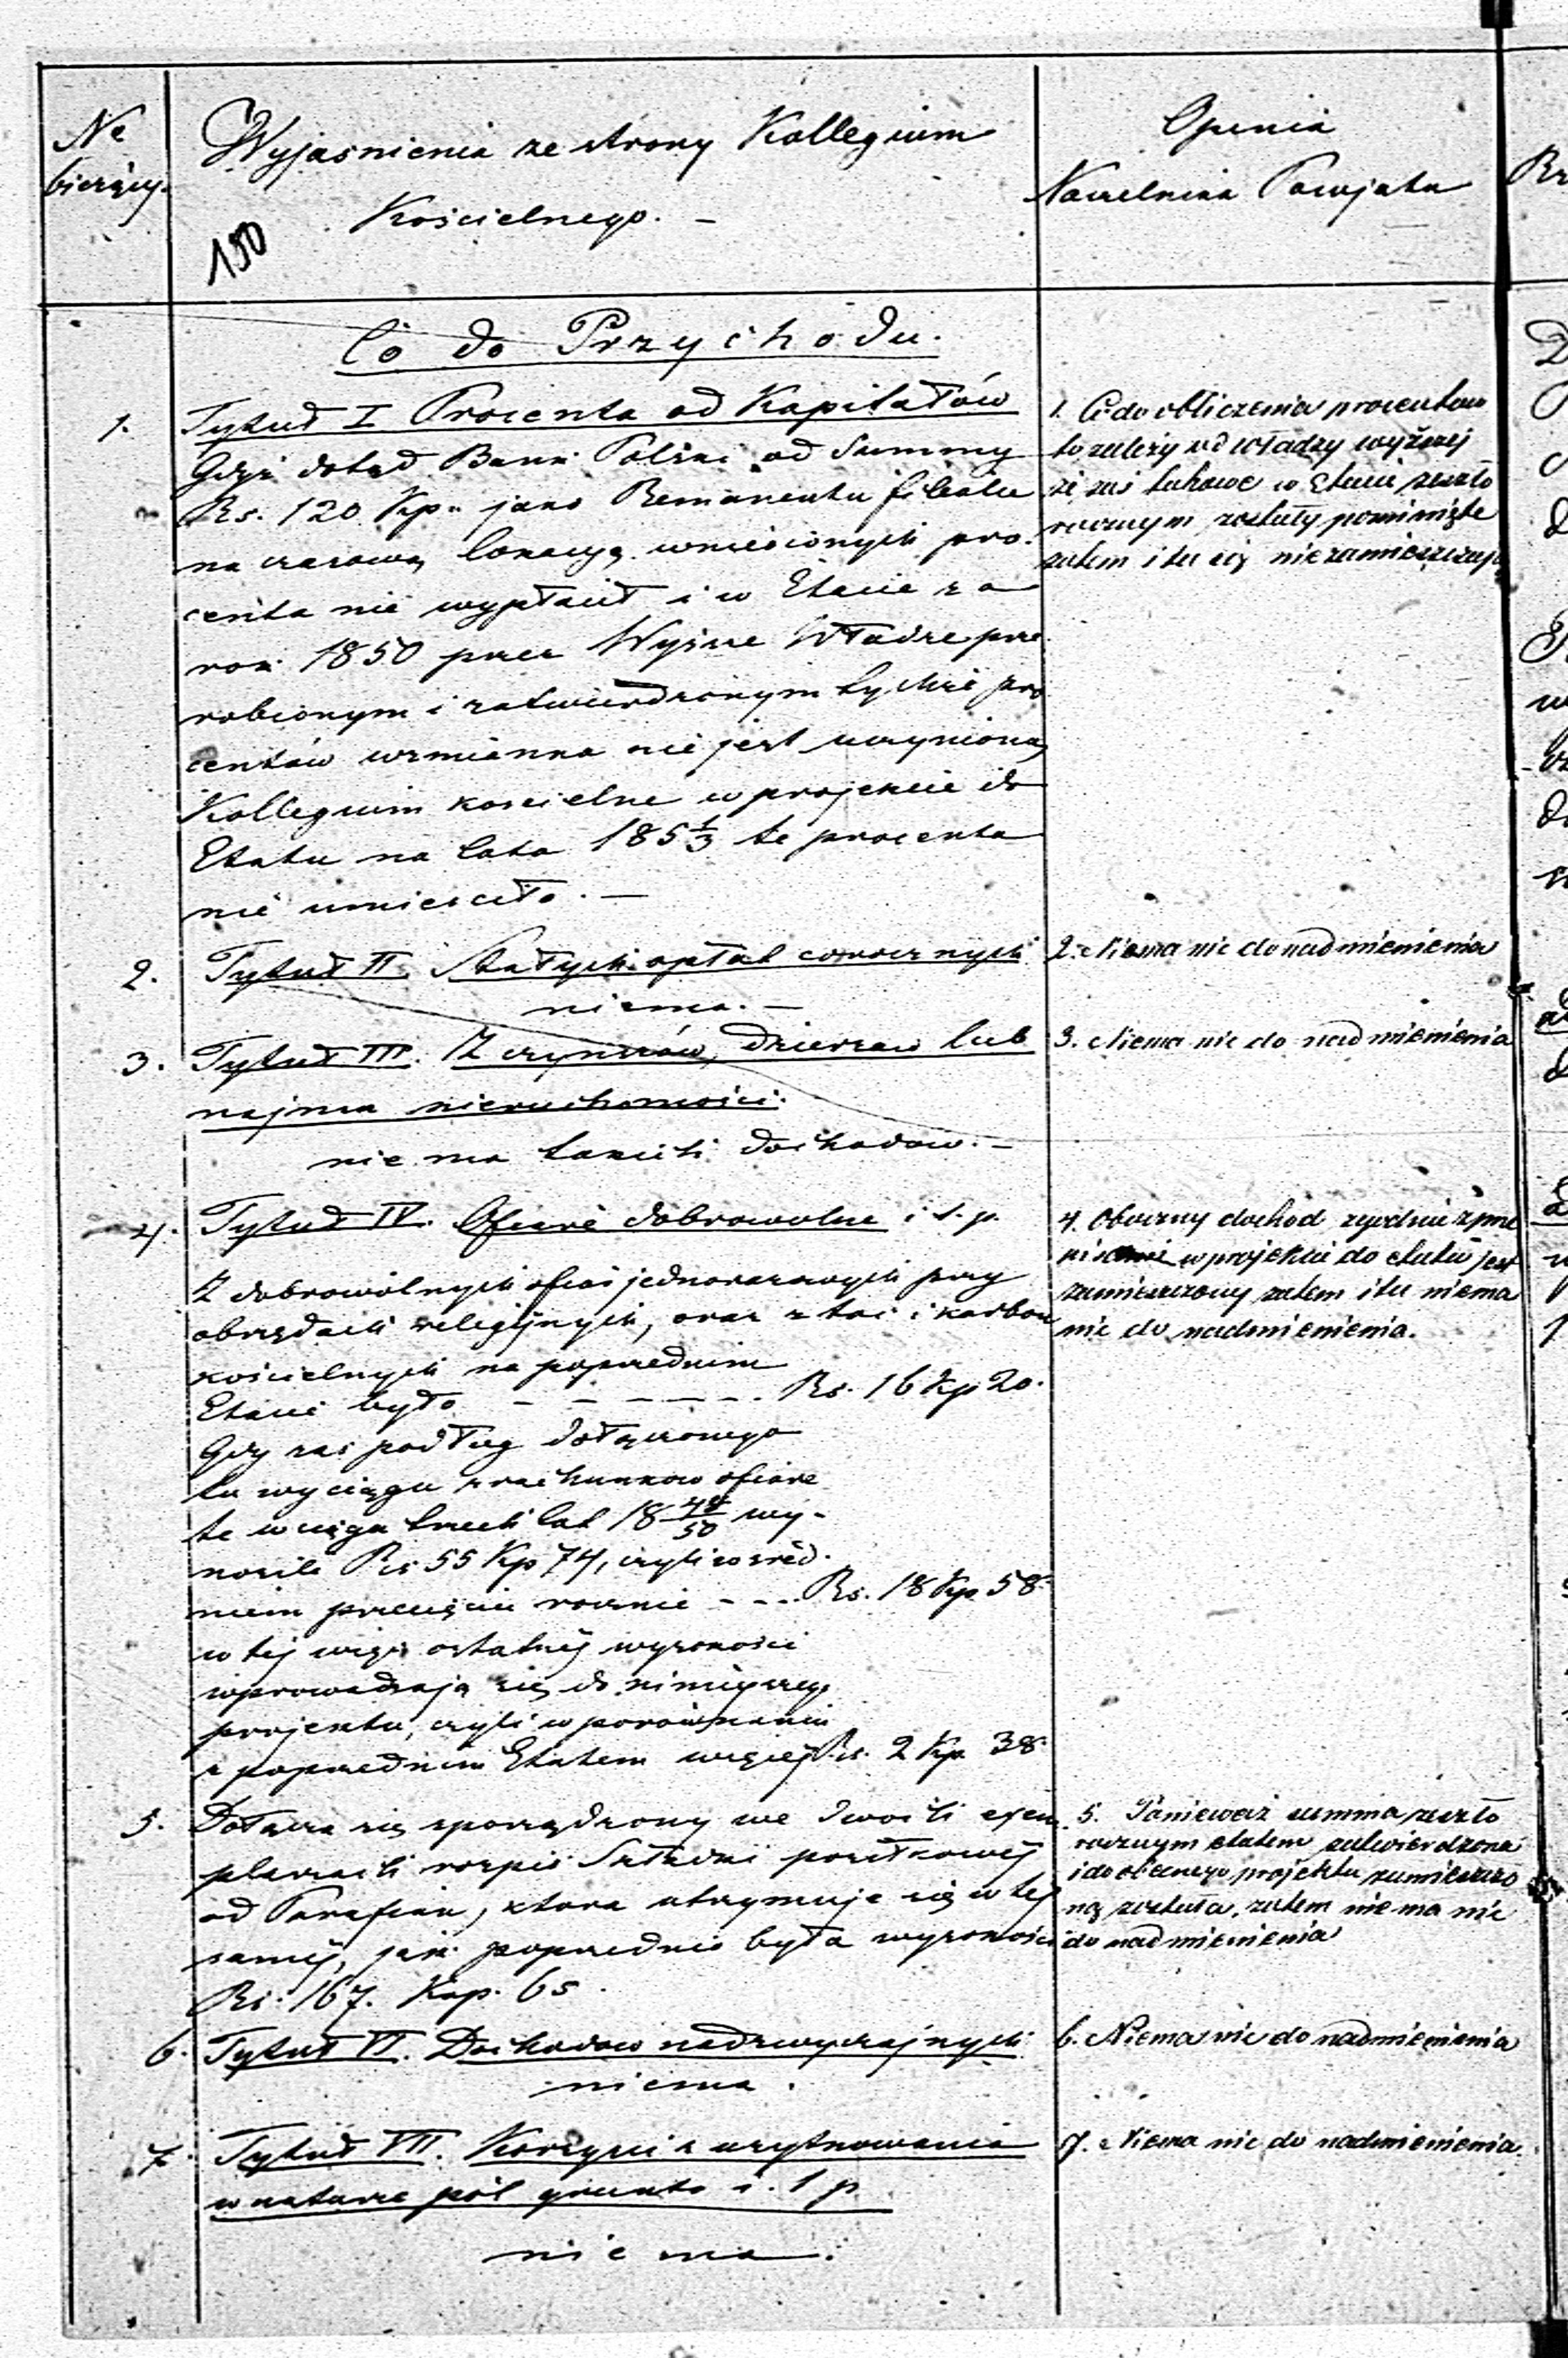 № bieżący.
Wyjasnienia ze strony Kollegium
Kościelnego. –
150
Opinia
Naczelnika Powiatu
Co do Przychodu.
1. Tytuł I Procenta od Kapitałów
Gdyż dotąd Bank Polski od Summy
Rs. 120 Kp „ jako Remanentu
na czasową lokacyą wniesionych pro-
centa nie wypłacił i w Etacie za
rok 1850 przez Wyższe Władze prze-
robionym i zatwierdzonym tychże pro
centów wzmianka nie jest uczynioną,
Kollegium kościelne w projekcie do
Etatu na lata 185 1/3 te procenta
nie umieściło. –
1. Co do obliczenia procentow
to zależy od władzy wyższej
że zaś takowe w Etacie zeszło
rocznym zostały pominięte
zatem i tu się niezamieszczają
2. Tytuł II. Stałych opłat corocznych
niema. –
2. Niema nic do nadmienienia
3. Tytuł III. Z czynszów, dzierzaw lub
najmu nieruchomości.
nie ma takich dochodow. –
3. Niema nic do nadmienienia
4. Tytuł IV. Ofiary dobrowolne i t. p.
Z dobrowolnych ofiar jednorazowych przy
obrzędach religijnych, oraz z tac i karbon
kościelnych na poprzednim
Etacie było – – – – – – Rs. 16 Kp 20.
Gdy zaś podług dołączonego
tu wyciągu z rachunkow ofiary
te w ciągu trzech lat 18 48/50 wy-
nosiły Rs 55 Kp 74, czyli w śred-
niem przecięciu rocznie – – – Rs. 18 Kp 58
w tej więc ostatniej wysokości
wprowadzają się do niniejszego
projektu, czyli w porównaniu
z poprzednim Etatem więcej Rs. 2 Kp 38
4. Oboczny dochód zgodnie z prze
w projekcie do etatu jest
zamieszczony zatem i tu niema
nic do nadmienienia.
5. Dołącza się sporządzony we dwóch exem
plarzach rozpis Składki posiłkowej
od Parafian, ktora utrzymuje się w tej
samej, jak poprzednio była wysokości
Rs. 167. Kop. 65.
5. Ponieważ summa zeszło
rocznym etatem zatwierdzona
i do obecnego projektu zamieszczo
ną została, zatem nie ma nic
do nadmienienia
6. Tytuł VI. Dochodow nadzwyczajnych
niema.
6. Niema nic do nadmienienia
7. Tytuł VII. Korzyści z użytkowania
w naturze pól gruntu i. t p.
nie ma.
7. Niema nic do nadmienienia.